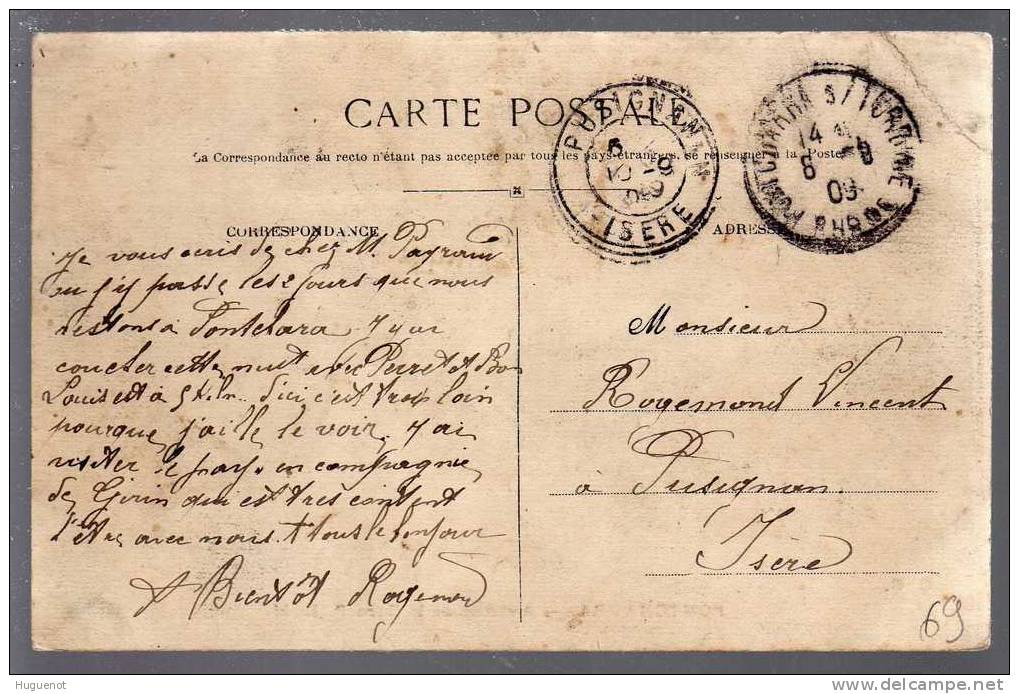 CARTE POSTALE
La Correspondance au recto n'étant pas acceptée par tous les pays étrangers, se renseigner à la Poste
PUSIGNAN
ISERE
PONTCHARRA S/ TURDINE
14
6
09
RHONE
CORRESPONDANCE
ADRESSE
Je vous ecris de chez M. Payraud
ou j'y passe les 2 jours que nous
restons à Pontchara. J'y ai
coucher cette nuit avec Perret et Bon
Louis est à 5 Klm. d'ici c'est tres loin
pourque j'aille le voir. J'ai
visiter le pays en compagnie
de Girin qui est tres content
d'être avec nous. tous le bonjour
A Bientôt Rogemond
Monsieur
Rogemond Vincent
à Pusignan.
Isère
69
Huguenot
delcampe.net